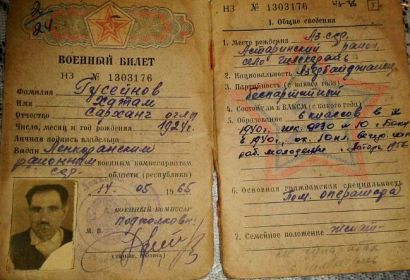 ВОЕННЫЙ БИЛЕТ
НЗ № 1303176
Фамилия Гусейнов
Имя Хатам
Отчество Сарханг оглы
Число, месяц и год рождения 1924 г.
Личная подпись владельца
Выдан Ленкоранским
районным военным комиссариатом
области (республики)
14 05 1965
ВОЕННЫЙ КОМИССАР
Подполковник
М. П.
НЗ № 1303176
I. Общие сведения
1. Место рождения Аз. сср.
Астаринский район,
село
2. Национальность Азербайджанец
3. Партийность (с какого года)
Беспартийный
4. Состоит ли в ВЛКСМ (с какого года)
5. Образование 6 классов в
1940 г.
в 1941 г., ок. 10 кл. вечер.
раб. молодежи
6. Основная гражданская специальность
Пом. оператора
7. Семейное положение женат